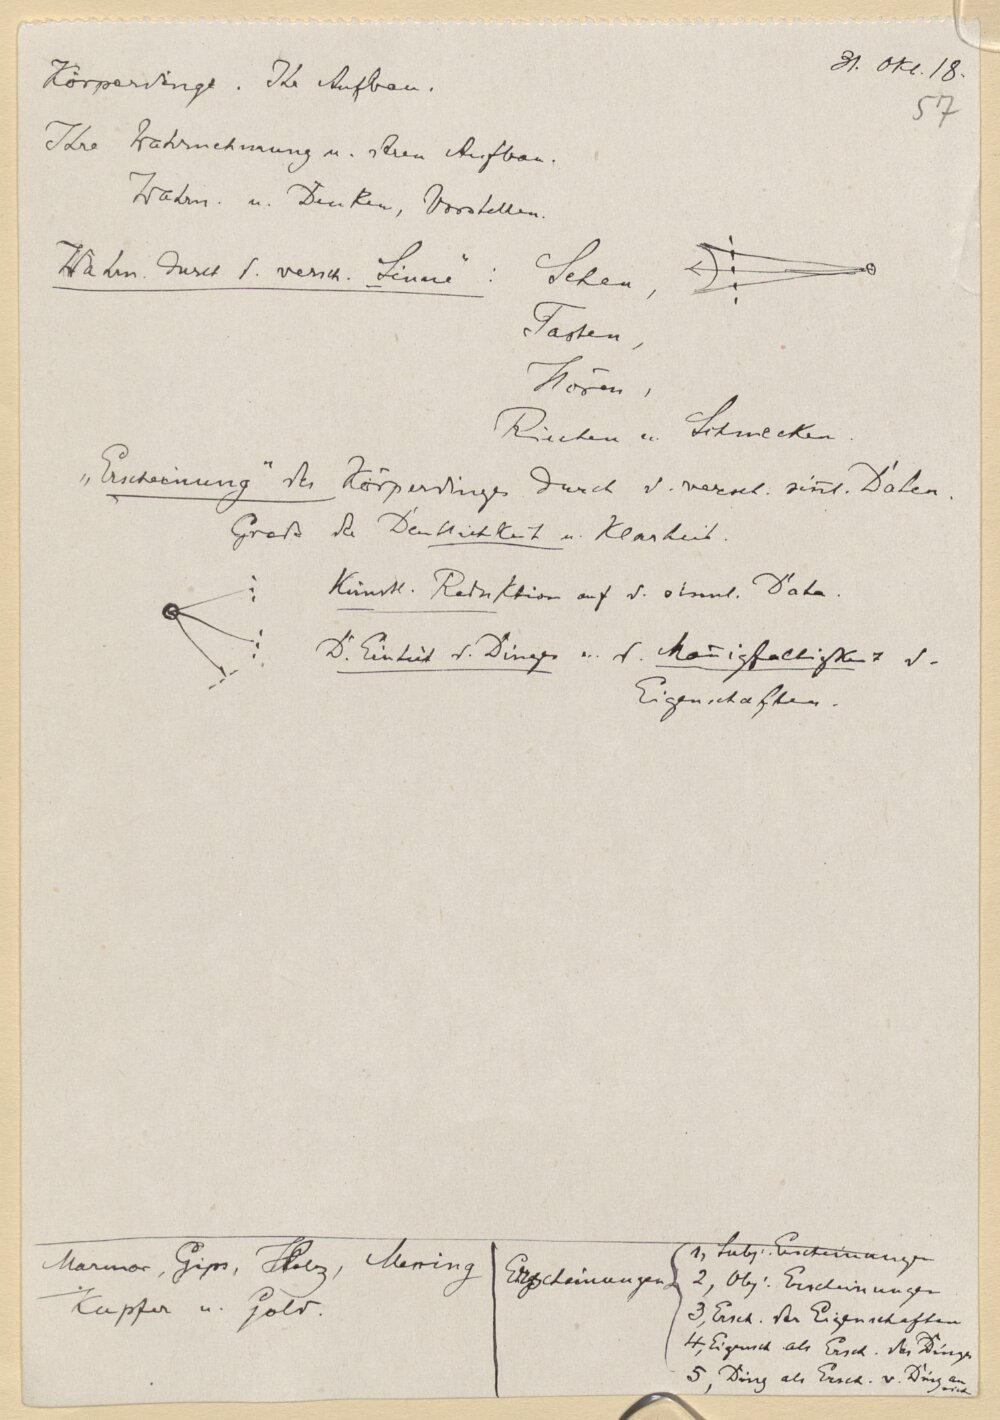 31. Okt. 18.
57
Körperdinge. Ihr Aufbau.
Ihre Wahrnehmung u. deren Aufbau.
Wahrn. u. Denken, Vorstellen.
Wahrn. durch d. versch. "Sinne" : Sehen,
Tasten,
Hören,
Riechen u. Schmecken.
„Erscheinung" des Körperdinges durch d. versch. sinnl. Daten.
Grade der Deutlichkeit u. Klarheit.
Künstl. Reduktion auf d. sinnl. Data.
D. Einheit d. Dinges u. d. Man̄igfaltigkeit d.
Eigenschaften.
Marmor, Gips, Holz, Messing
Kupfer u. Gold.
Erscheinungen
1, Subj. Erscheinungen
2, Obj. Erscheinungen
3, Ersch. der Eigenschaften
4, Eigensch als Ersch. des Dinges
5, Ding als Ersch. v. Ding an sich